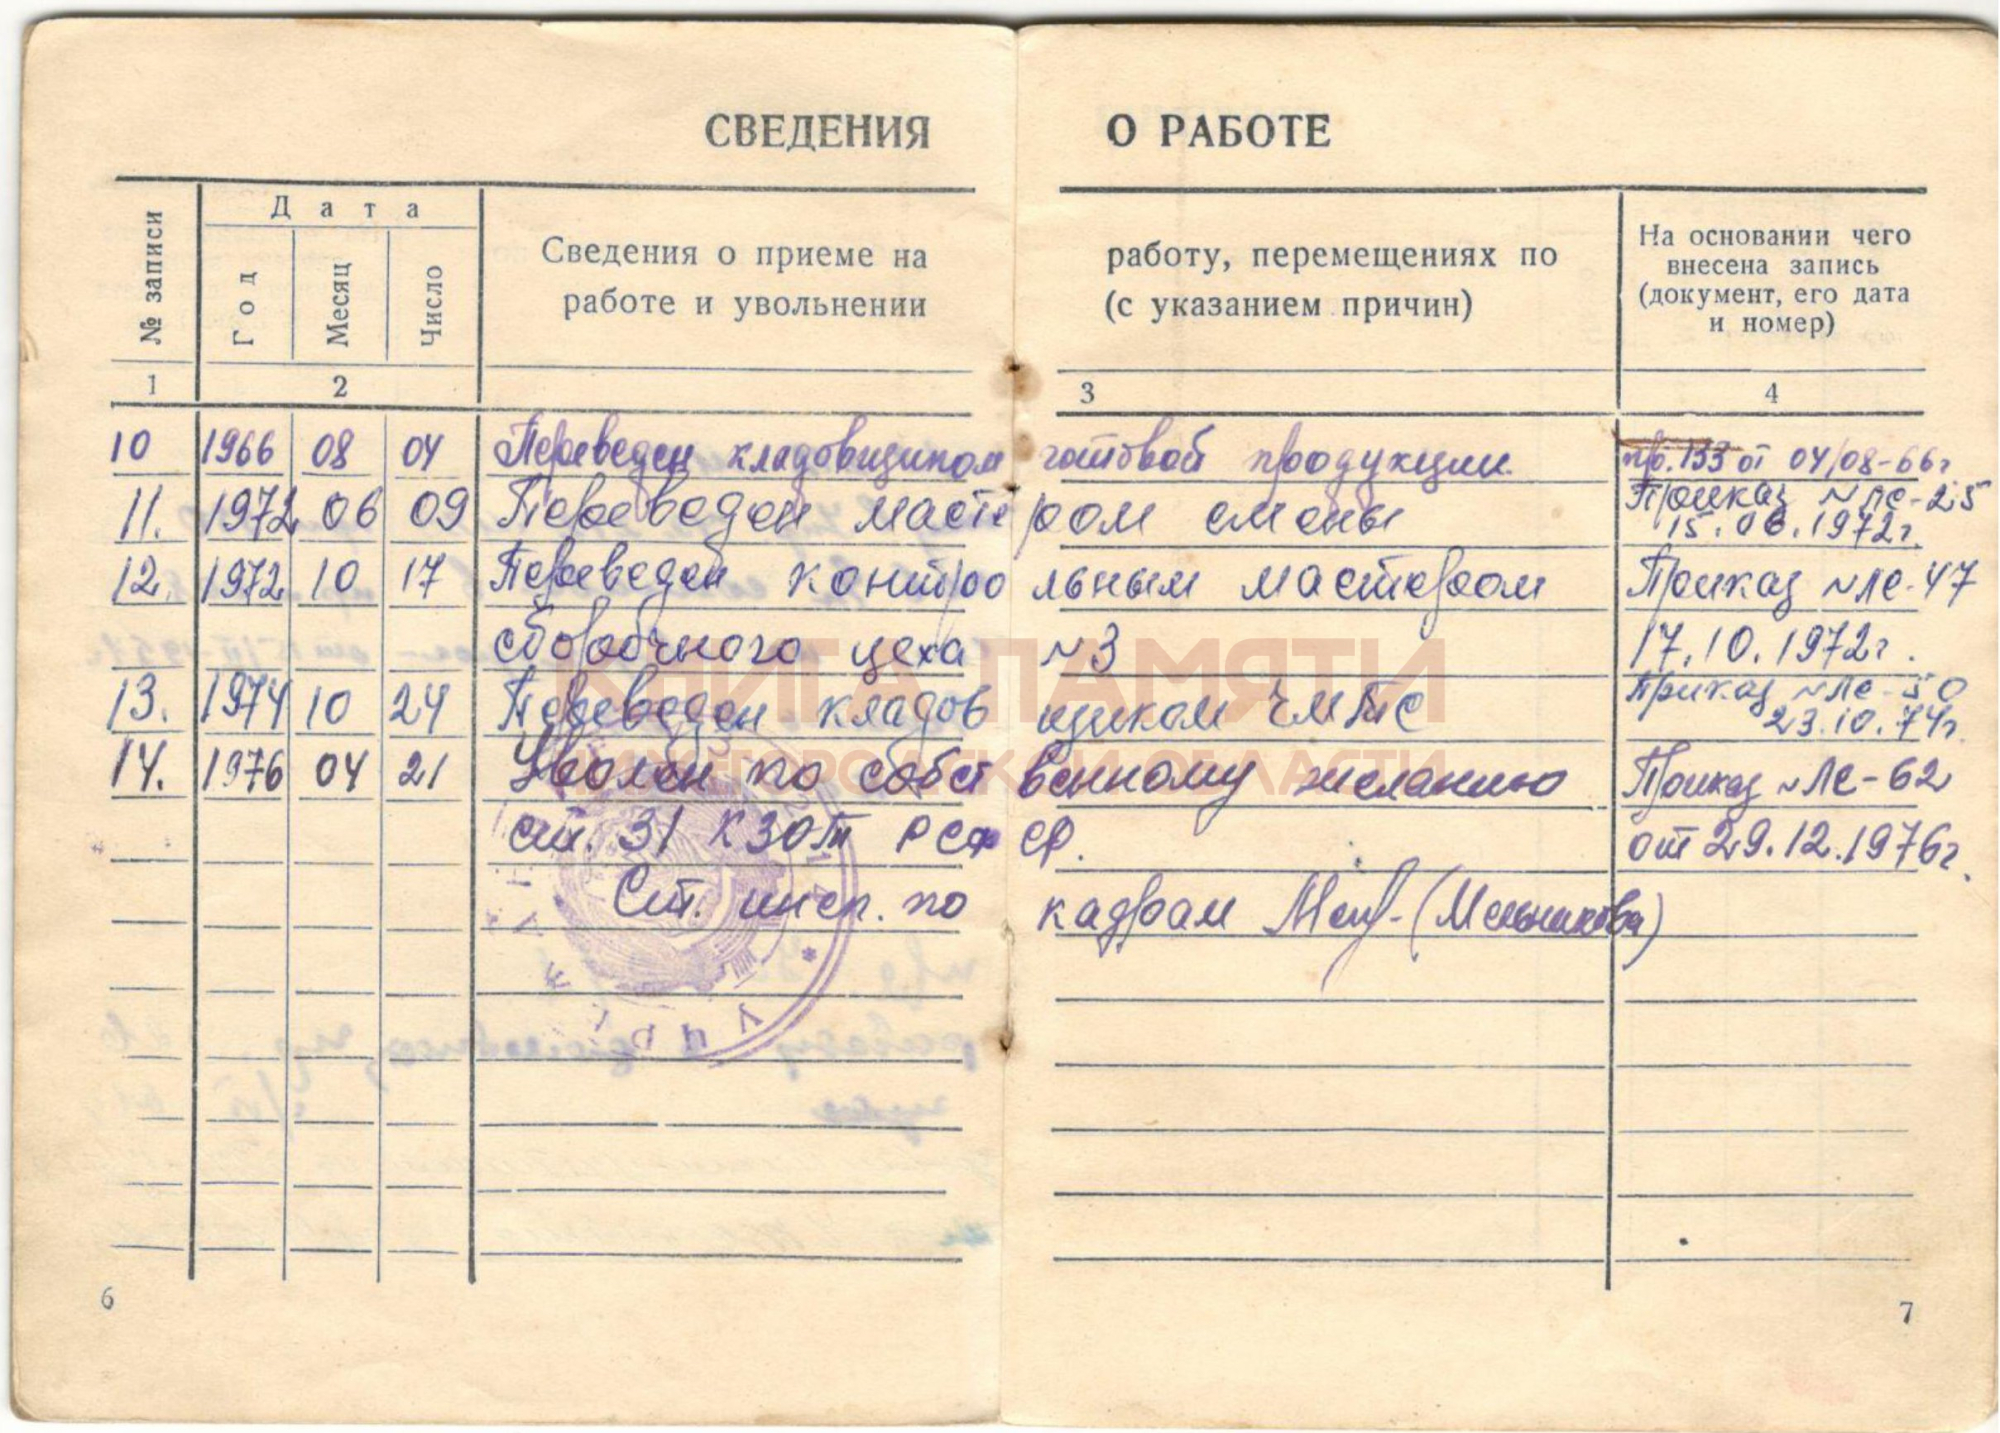 СВЕДЕНИЯ О РАБОТЕ
№ записи
Дата
Год
Месяц
Число
Сведения о приеме на работу, перемещениях по
работе и увольнении (с указанием причин)
На основании чего
внесена запись
(документ, его дата
и номер)
1 2 3 4
10 1966 08 04 Переведен кладовщиком готовой продукции пр. 133 от 04/08-66г
11. 1972 06 09 Переведен мастером смены Приказ №ЛС-25
15.06.1972г.
12. 1972 10 17 Переведен контрольным мастером Приказ №ЛС-47
сборочного цеха №3 17.10.1972г.
13. 1974 10 24 Переведен кладовщиком Приказ №ЛС-50
23.10.74г.
14. 1976 04 21 Уволен по собственному желанию Приказ №ЛС-62
ст. 31 КЗОТ РСФСР. от 29.12.1976г.
Ст. инсп. по кадрам (Мельникова)
КНИГА ПАМЯТИ
НИЖЕГОРОДСКОЙ ОБЛАСТИ
6 7